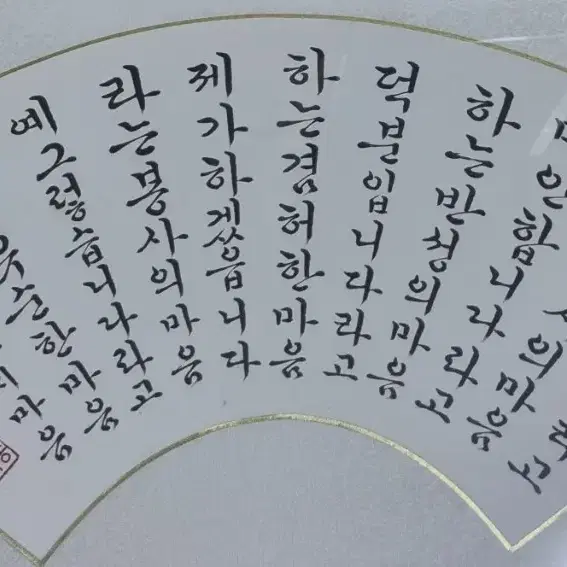 라고
의마음
미안합니다라고
하는반성의마음
덕분입니다라고
하는겸허한마음
제가하겠읍니다
라는봉사의마음
예그렇습니다라고
유순한마음
마음